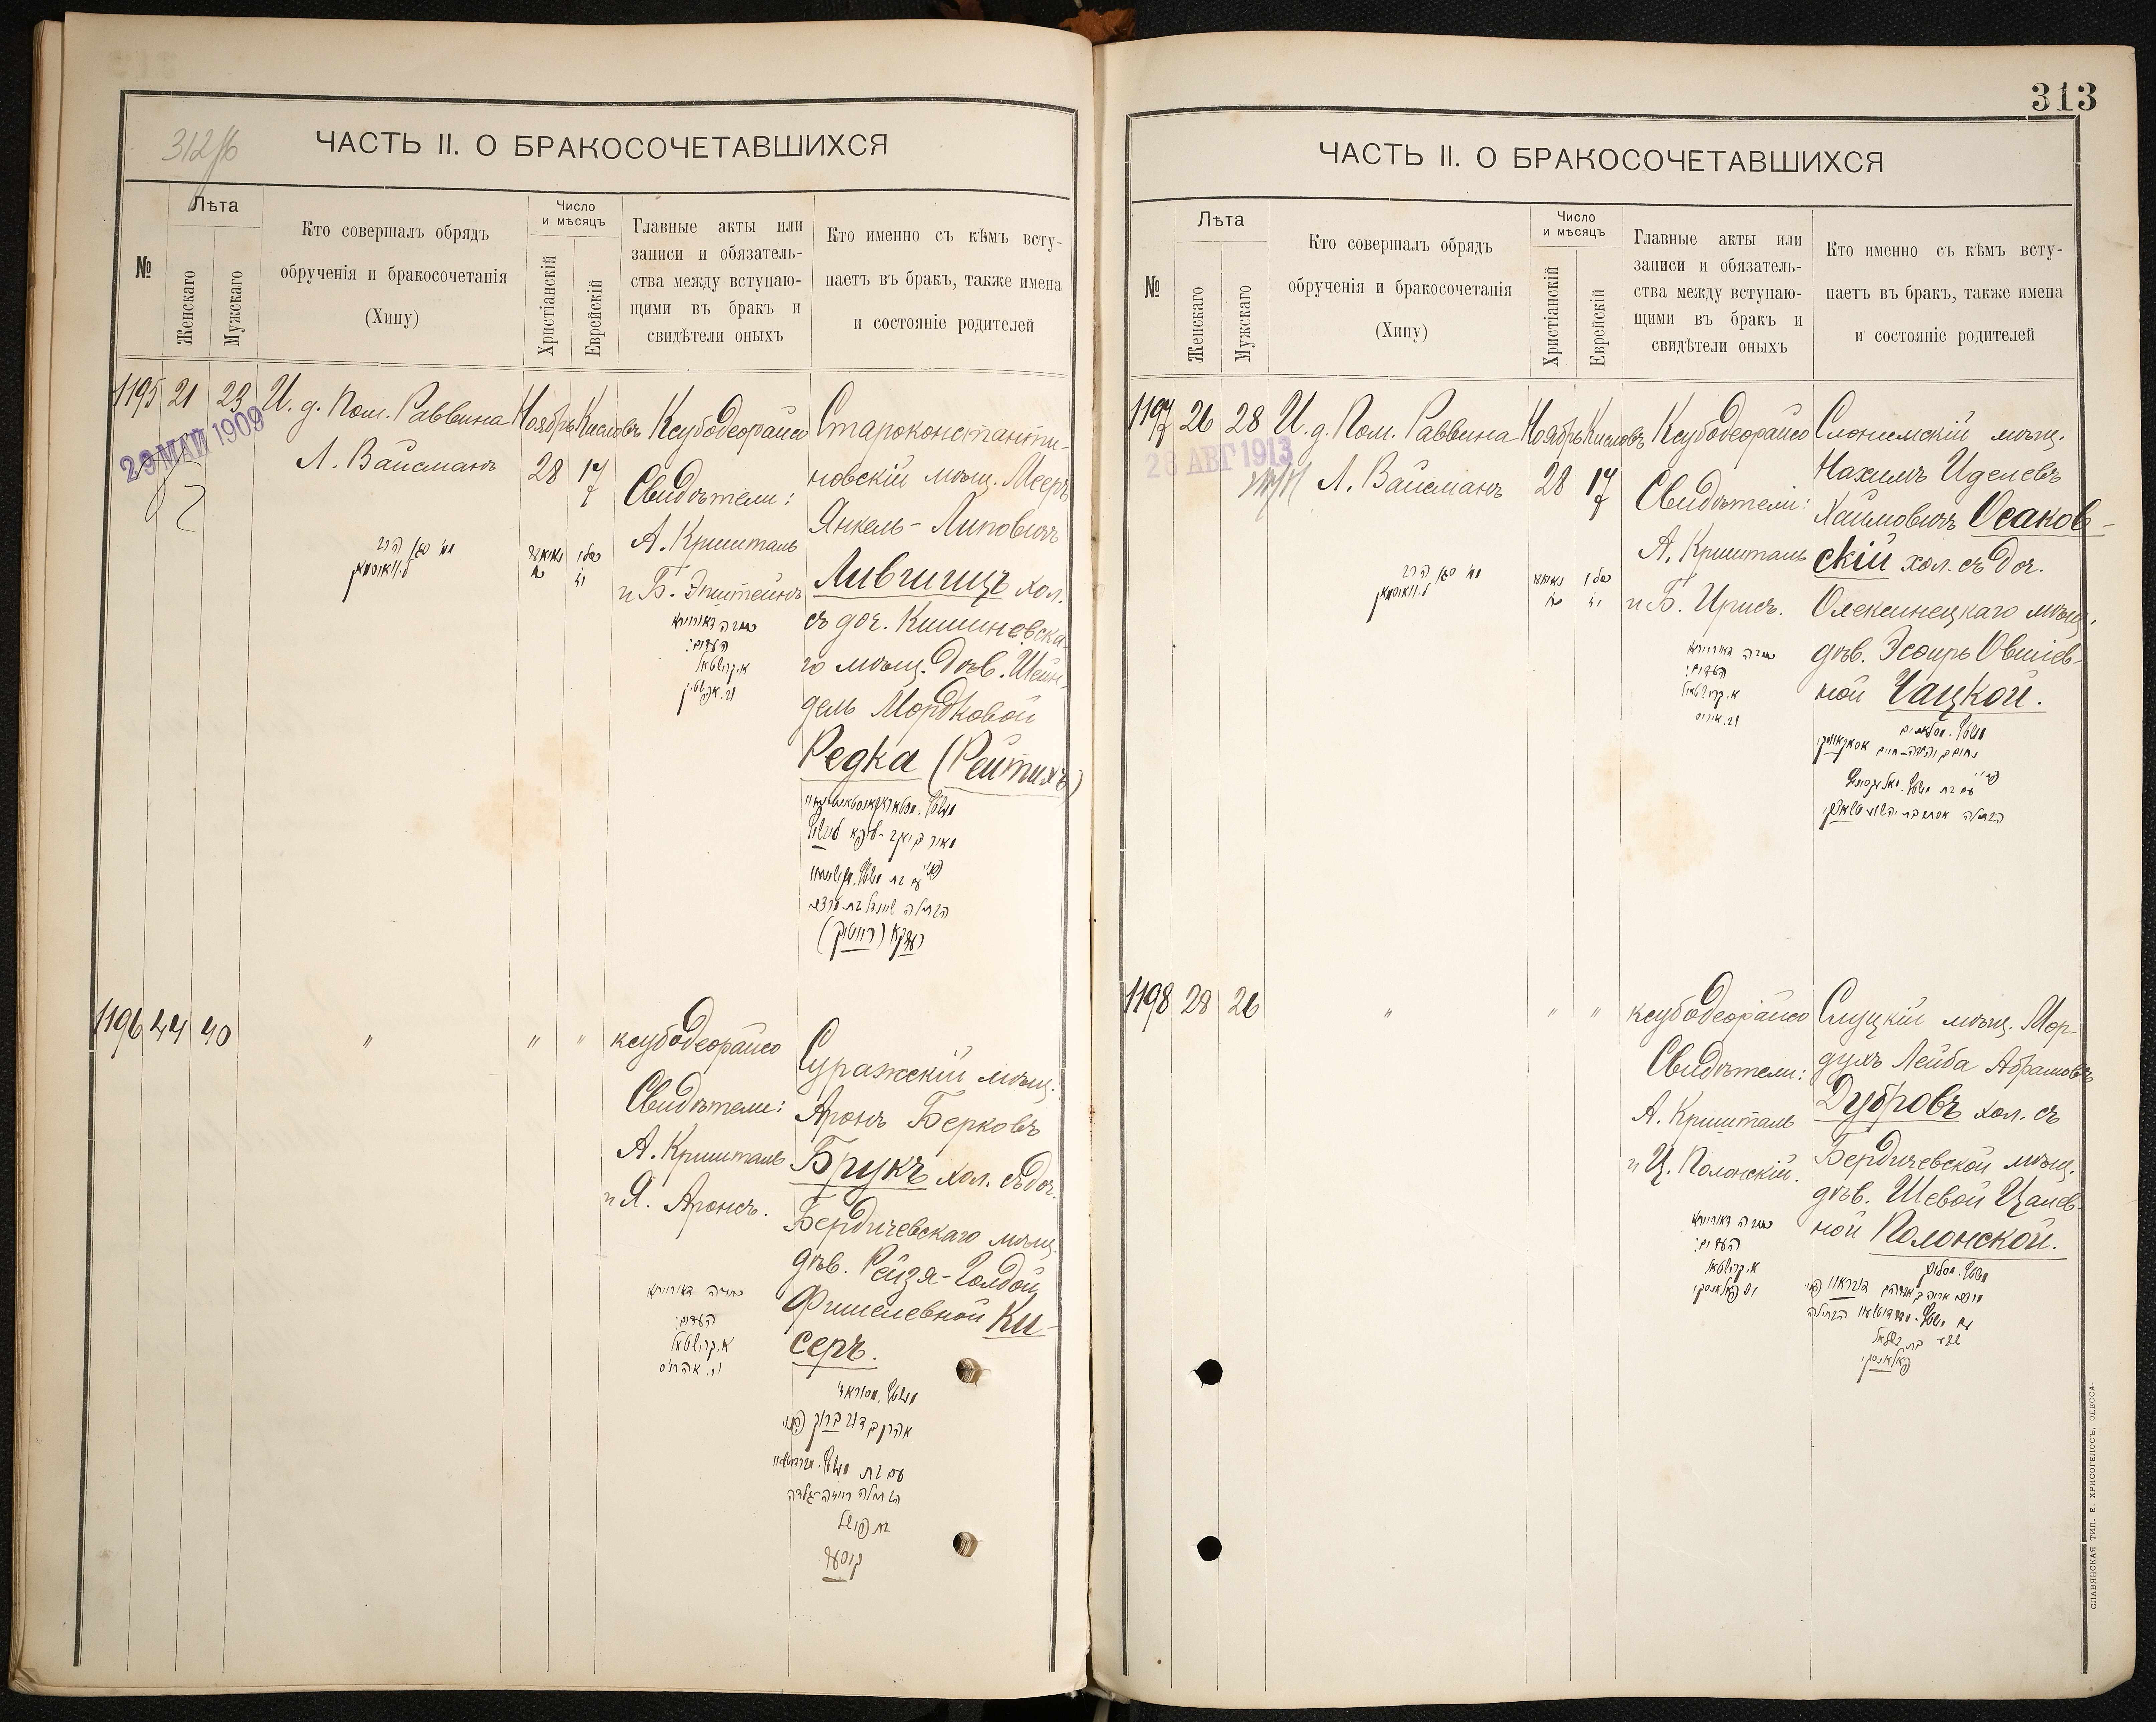 312 об
ЧАСТЬ II. О БРАКОСОЧЕТАВШИХСЯ
№
Лѣта
Женскаго
Мужскаго
Кто совершалъ обрядъ
обрученія и бракосочетанія
(Хипу)
Число
и мѣсяцъ
Христіанскій
Еврейскій
Главные акты или
записи и обязатель-
ства между вступаю-
щими въ бракъ и
свидѣтели оныхъ
Кто именно съ кѣмъ всту-
паетъ въ бракъ, также имена
и состояніе родителей
1195 21 23
29 МАЙ 1909
И. д. Пом. Раввина
Л. Вайсманъ
Ноябрь
28
Кислевъ
17
Ксубодеорайсо
Свидѣтели:
А. Кришталь
и Б. Эпштейнъ
כתובה דאורייתא
העדים:
א. קרישטאל
וב. אפשטיין
Староконстанти-
новскій мѣщ. Мееръ
Янкель-Липовичъ
Лившицъ хол.
съ доч. Кишиневска-
го мѣщ. дѣв. Шейн-
дель Мордковой
Редка (Рейтихъ)
1196 44 40
" " "
ксубодеорайсо
Свидѣтели:
А. Кришталь
и Я. Аронсъ.
כתובה דאורייתא
העדים:
א. קרישטאל
וי. אהרונס
Суражскій мѣщ.
Аронъ Берковъ
Брукъ хол. съ доч.
Бердичевскаго мѣщ.
дѣв. Рейзя-Голдой
Фишелевной Ки-
серъ.
בת פישל
קיסער
313
ЧАСТЬ II. О БРАКОСОЧЕТАВШИХСЯ
№
Лѣта
Женскаго
Мужскаго
Кто совершалъ обрядъ
обрученія и бракосочетанія
(Хипу)
Число
и мѣсяцъ
Христіанскій
Еврейскій
Главные акты или
записи и обязатель-
ства между вступаю-
щими въ бракъ и
свидѣтели оныхъ
Кто именно съ кѣмъ всту-
паетъ въ бракъ, также имена
и состояніе родителей
1197 26 28
28 АВГ 1913
И. д. Пом. Раввина
Л. Вайсманъ
Ноябрь
28
Кислевъ
17
Ксубодеорайсо
Свидѣтели:
А. Кришталь
и Б. Ирисъ.
כתובה דאורייתא
העדים:
א. קרישטאל
וב. איריס
Слонимскій мѣщ.
Нахимъ Иделевъ
Хаимовичъ Осаков-
скій хол. съ доч.
Олексинецкаго мѣщ.
дѣв. Эсѳирь Овшіев-
ной Чацкой.
1198 28 26
" " "
ксубодеорайсо
Свидѣтели:
А. Кришталь
и Ц. Полонскій.
כתובה דאורייתא
העדים:
א. קרישטאל
Слуцкій мѣщ. Мор-
духъ Лейба Абрамовъ
Дубровъ хол. съ
Бердичевской мѣщ.
дѣв. Шевой Цалев-
ной Полонской.
СЛАВЯНСКАЯ ТИП. Е. ХРИСОГЕЛОСЪ, ОДЕССА.